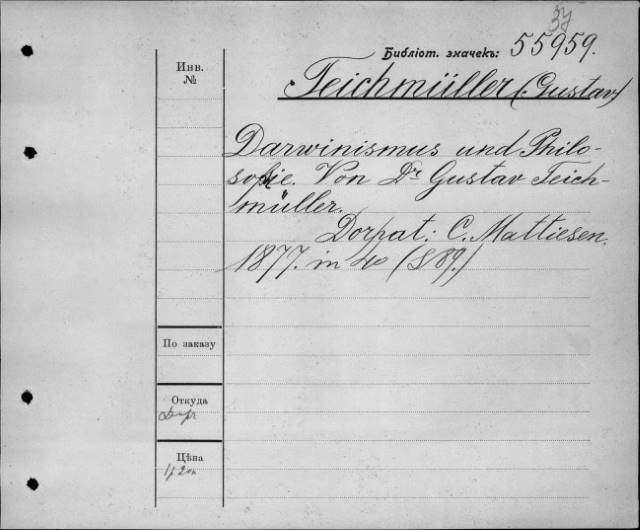 37
Библіот. значекъ: 55959.
Инв.
№
Teichmüller (Gustav)
Darwinismus und Philo-
sophie. Von Dr Gustav Teich-
müller.
Dorpat: C. Mattiesen.
1877. in 4o (S 89.)
По заказу
Откуда
Цѣна